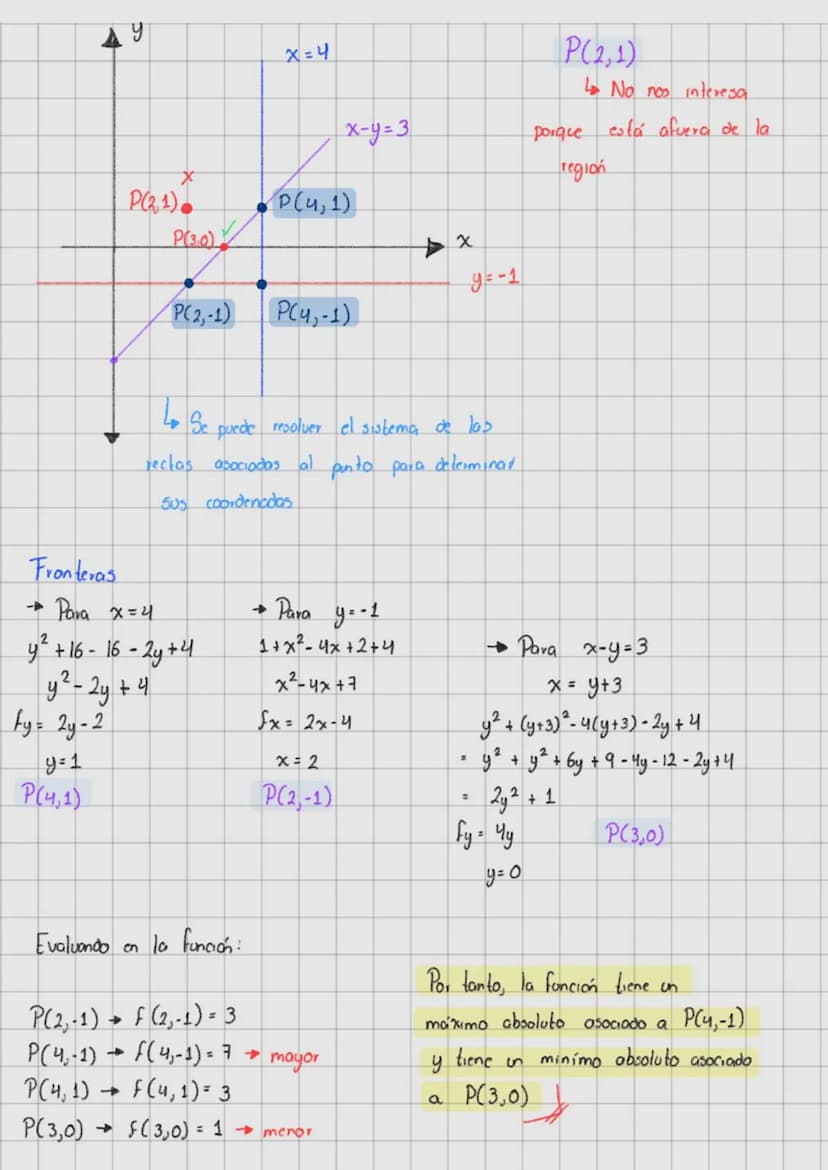 y
x = 4
x-y = 3
P(2,1)
↳ No nos interesa
porque está afuera de la
región
x
P(2,1)
P(4,1)
P(3,0) ✓
x
y = -1
P(2,-1)
P(4,-1)
↳ Se puede resolver el sistema de las
rectas asociadas al punto para determinar
sus coordenadas
Fronteras
→ Para x=4
y² + 16 - 16 - 2y + 4
y² - 2y + 4
fy = 2y - 2
y = 1
P(4,1)
→ Para y = -1
1 + x² - 4x + 2 + 4
x² - 4x + 7
fx = 2x - 4
x = 2
P(2,-1)
→ Para x-y = 3
x = y+3
y² + (y+3)² - 4(y+3) - 2y + 4
= y² + y² + 6y + 9 - 4y - 12 - 2y + 4
= 2y² + 1
fy = 4y
P(3,0)
y = 0
Evaluando en la función:
P(2,-1) → f(2,-1) = 3
P(4,-1) → f(4,-1) = 7 → mayor
P(4,1) → f(4,1) = 3
P(3,0) → f(3,0) = 1 → menor
Por tanto, la función tiene un
máximo absoluto asociado a P(4,-1)
y tiene un mínimo absoluto asociado
a P(3,0)